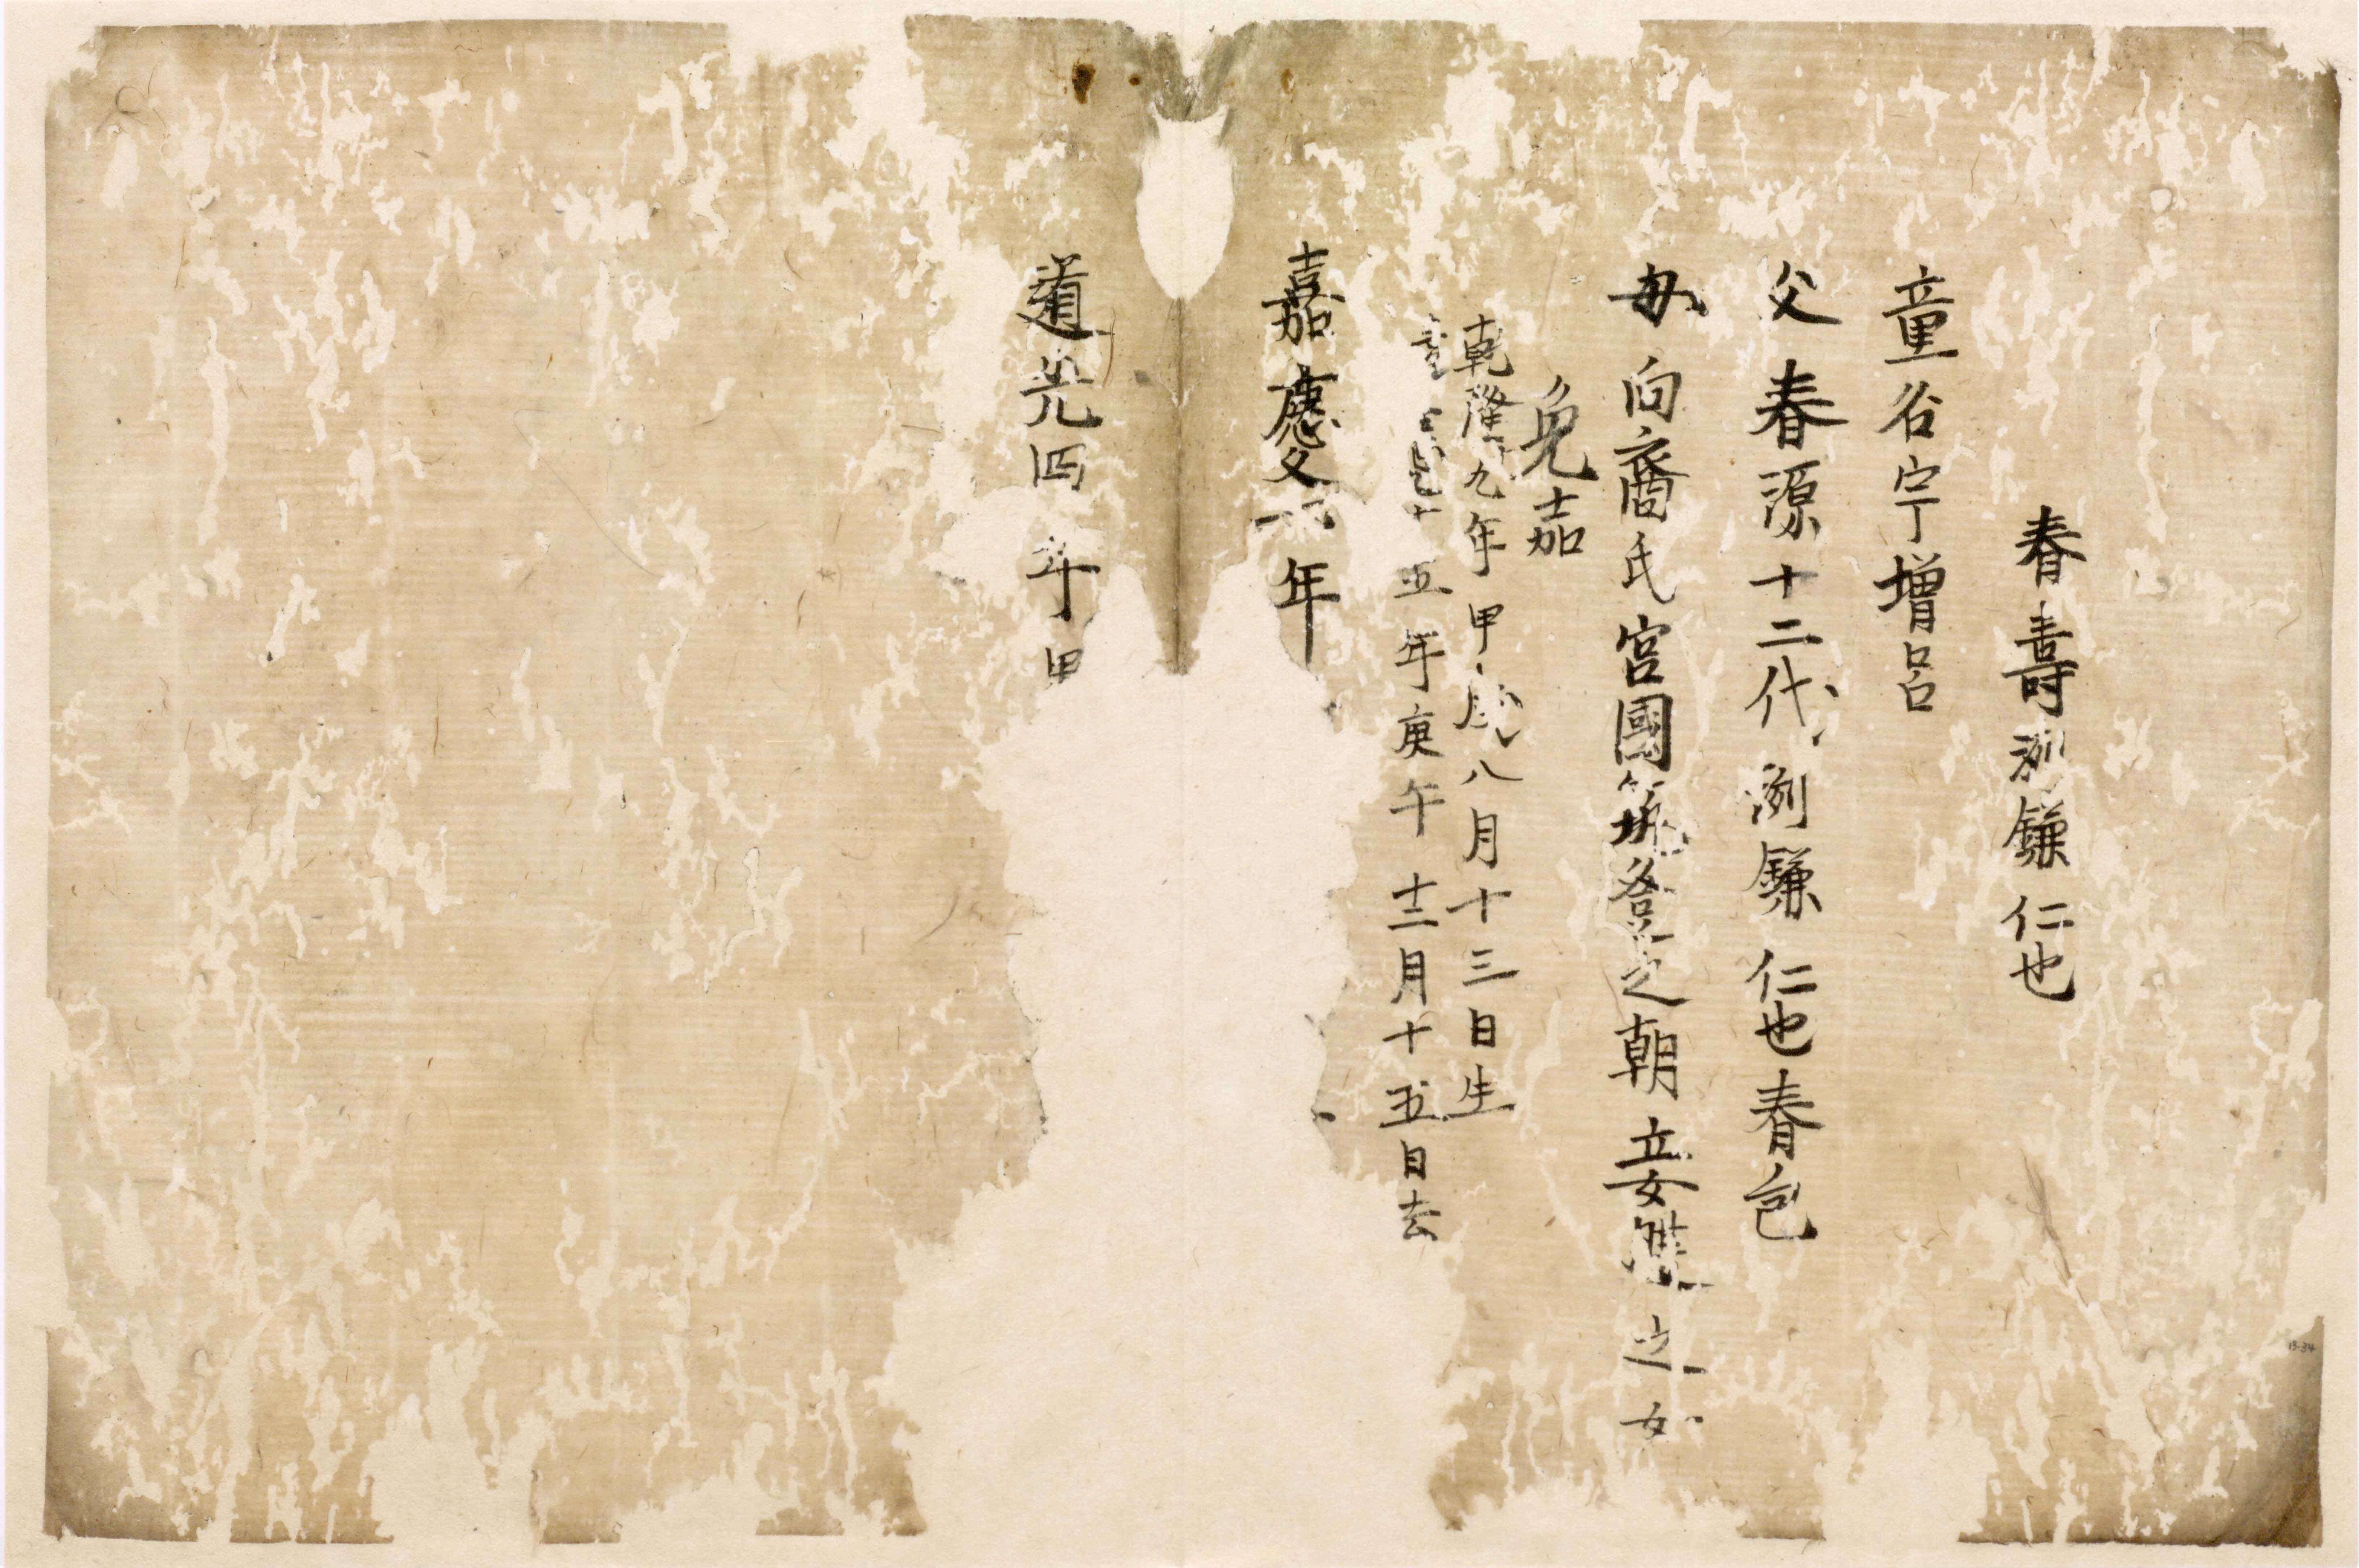 春壽洌鎌仁也
童名宇增呂
父春源十二代洌鎌仁也春邑
母向裔氏宮國筑登之朝立妾之女
免嘉
乾隆九年甲八月十三日生
五年庚午十二月十五日去
嘉慶年
道光四年甲
13-34